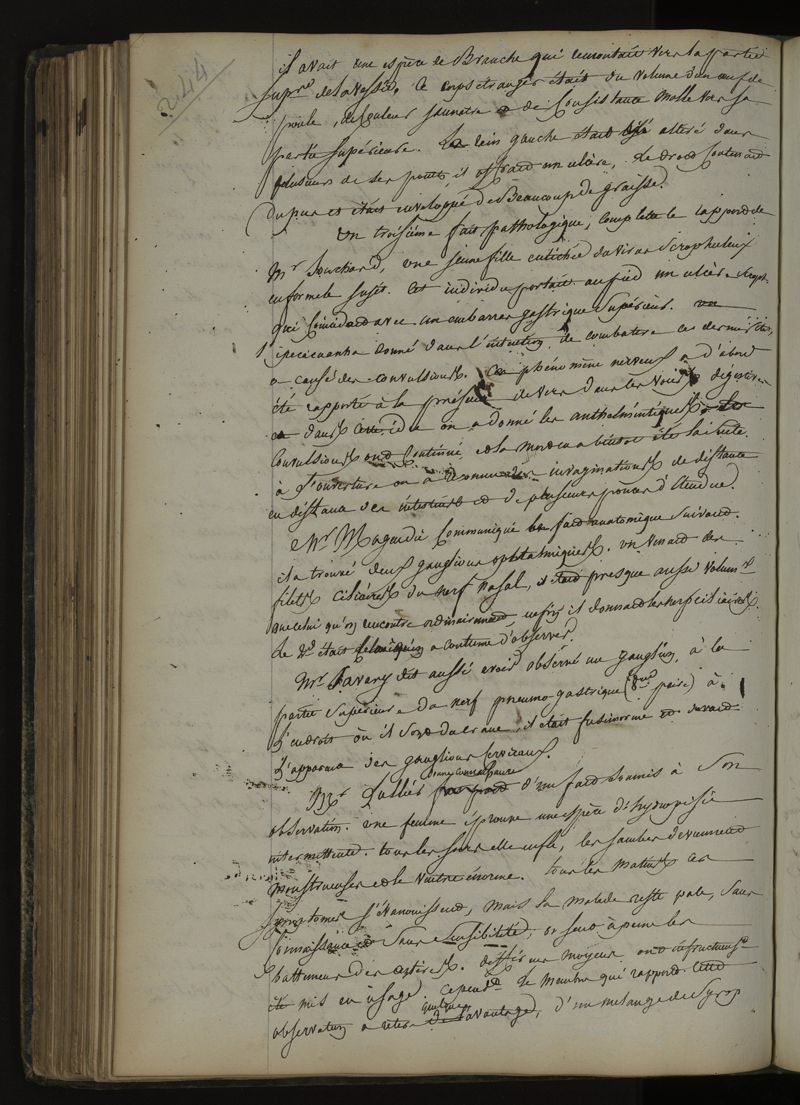 244
il avait une espèce de Branche qui remontait vers la partie
supre de la vessie. Ce corps etranger était du volume d'un œuf de
poule, de couleur jaunatre & de Consistance molle vers sa
partie supérieure. Le rein gauche était altéré dans
plusieurs de ses points, il offrait un ulcère, le droit Contenait
du pus et était enveloppé de Beaucoup de graisse.
Un troisième fait pathologique, complette le rapport de
Mr Souchard, une jeune fille entichée du virus Scrophuleux
en forme le sujet. Cet individu portait au pied un ulcère
qui Coincidait avec un embarras gastrique Supérieur.
l'ipecacuanha donné dans l'intention de combattre ce dernier
a causé des convulsions. Ce phénomène nerveux a d'abord
été rapporté à la présence de vers dans les voies digestives
dans cette idée on a donné les anthelmintiques
Convulsions ont Continué et la mort en a bientôt été la suite.
à l'ouverture on a reconnu des invaginations de distance
en distance des intestins et de plusieurs pouces d'étendue.
Mr. Magendie Communique le fait anatomique suivant.
il a trouvé deux ganglions ophtalmiques. un venait des
filets ciliaires du nerf nasal, il était presque aussi volum.x
que celui qu'on rencontre ordinairement, enfin il donnait les nerfs ciliaires.
le 2d était celui qu'on a coutume d'observer.
Mr. Tavery dit aussi avoir observé un ganglion, à la
partie Supérieure du nerf pneumo-gastrique (8me paire) à
l'endroit où il sort du crane, il était fusiforme et avait
l'apparence des ganglions Cervicaux.
donne connaissance
Mr. Dallès fait part d'un fait soumis à Son
observation. Une femme éprouve une espèce d'hydropisie
intermittente. tous les soirs elle enfle, les jambes deviennent
monstrueuses et le ventre énorme. tous les matins ces
symptomes s'évanouissent, mais la malade reste pale, sans
Connaissance et sans sensibilité, on sent à peine les
battemens des artères. différens moyens ont infructueust
été mis en usage, cependt le membre qui rapporte cette
quelque
observation a retiré de l'avantage, d'un mélange de Syrop